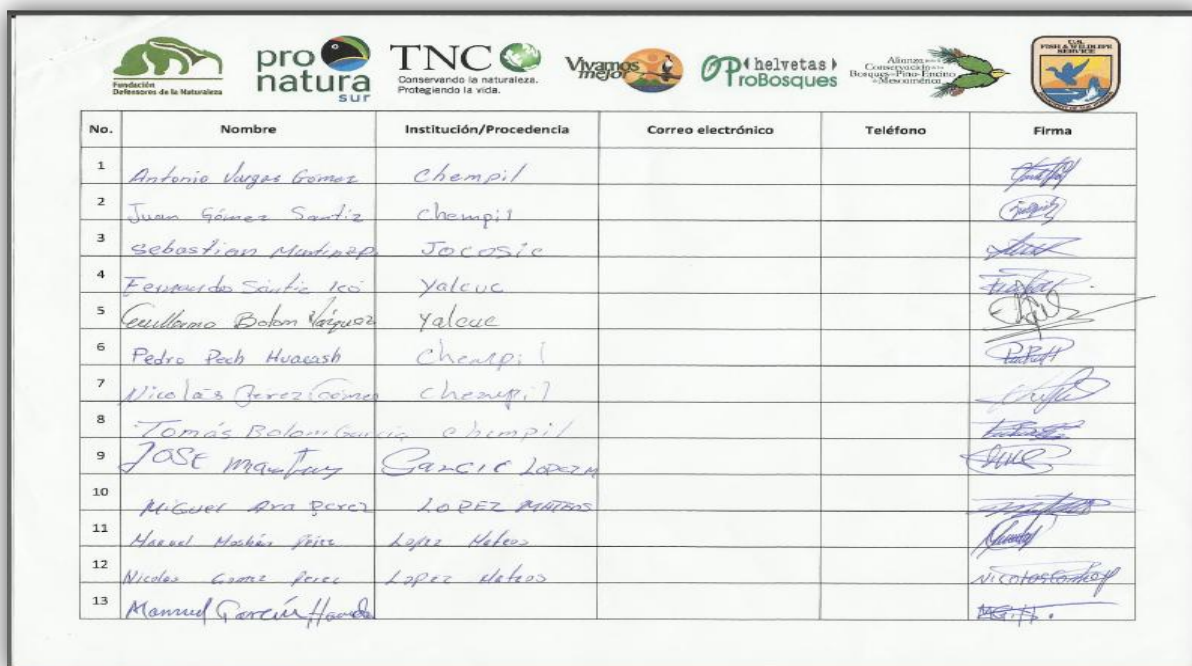 Fundación
Defensores de la Naturaleza
pro
natura
sur
TNC
Conservando la naturaleza.
Protegiendo la vida.
Vivamos
mejor
helvetas
ProBosques
Alianza para la
Conservación de los
Bosques de Pino-Encino
de Mesoamérica
U.S.
FISH & WILDLIFE
SERVICE
No. Nombre Institución/Procedencia Correo electrónico Teléfono Firma
1 Antonio Vargas Gómez Chempil
2 Juan Gómez Santiz Chempil
3 Sebastian Jocosic
4 Fernando Sántiz Icó Yalcuc
5 Guillermo Bolom Vázquez Yalcuc
6 Pedro Pech Huacash Chempil
7 Nicolás Pérez Gómez Chempil
8 Tomás Bolom García Chempil
9 JOSE Garcie LOPEZ M
10 Miguel Ara Perez LOPEZ MATEOS
11 Manuel Pérez Lopez Mateos
12 Nicolas Gomez Perez Lopez Mateos
13 Manuel García